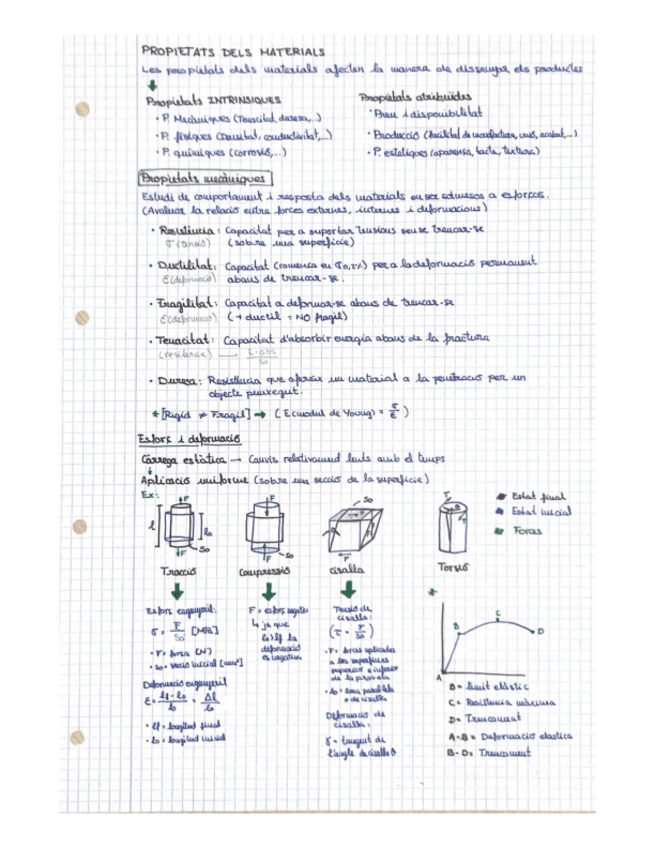 PROPIETATS DELS MATERIALS
Les propietats dels materials afecten la manera de dissenyar els productes
Propietats INTRINSIQUES
Propietats atribuïdes
• P. Mecàniques (Tenacitat, duresa,...)
• Preu i disponibilitat
• P. físiques (Densitat, conductivitat,...)
• Producció (facilitat de manufactura, unió, acabat,...)
• P. químiques (corrosió,...)
• P. estètiques (aparensa, tacte, textura)
Propietats mecàniques
Estudi de comportament i resposta dels materials en ser sotmesos a esforços.
(Avaluar la relació entre forces externes, internes i deformacions)
• Resistència: Capacitat per a suportar tensions sense trencar-se
σ (tensió) (sobre una superfície)
• Ductilitat: Capacitat (comença en σ0,2%) per a la deformació permanent
ε (deformació) abans de trencar-se.
• Fragilitat: Capacitat a deformar-se abans de trencar-se
ε (deformació) (+ ductil = NO fragil)
• Tenacitat: Capacitat d'absorbir energia abans de la fractura
(resiliència) → E. abs / So
• Duresa: Resistència que ofereix un material a la penetració per un
objecte punxegut.
* [Rigid ≠ Fragil] → (E (modul de Young) = σ/ε)
Esforç i deformació
Càrrega estàtica → Canvis relativament lents amb el temps
Aplicació uniforme (sobre una secció de la superfície)
Ex:
F
l
lo
So
F
Tracció
F
So
F
Compressió
So
F
cisalla
T
Torsió
Estat final
Estat inicial
Forces
Esforç enginyeril:
σ = F/So [MPa]
• F = força [N]
• So = secció inicial [mm²]
Deformació enginyeril
ε = (lf - lo)/lo = Δl/lo
• lf = longitud final
• lo = longitud inicial
F = esforç negatiu
↳ ja que
lo > lf la
deformació
és negativa
Tensió de
cisalla:
(τ = F/So)
• F = força aplicada
a les superfícies
superior e inferior
de la proveta
• Ao = àrea paral·lela
o de cisalla
Deformació de
cisalla:
γ = tangent de
l'angle de cisalla θ
*
A
B
C
D
B = límit elàstic
C = Resistència màxima
D = Trencament
A-B = Deformació elastica
B-D = Trencament